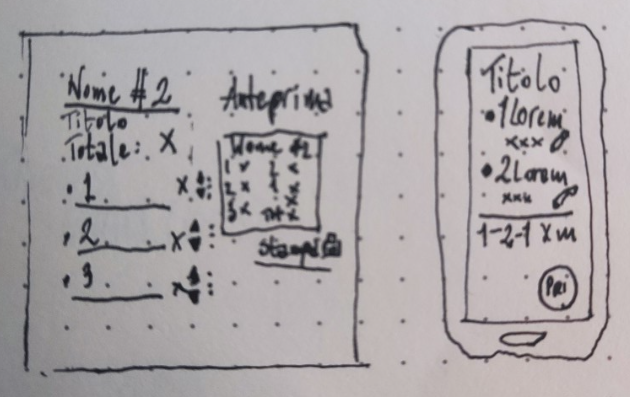 Nome # 2
Titolo
Totale: X
• 1 X
• 2 X
• 3
Anteprima
Nome #2
1 x
2 x
3 x
Stampa
Titolo
• 1 Lorem
xxx
• 2 Lorem
xxx
1-2-1 X m